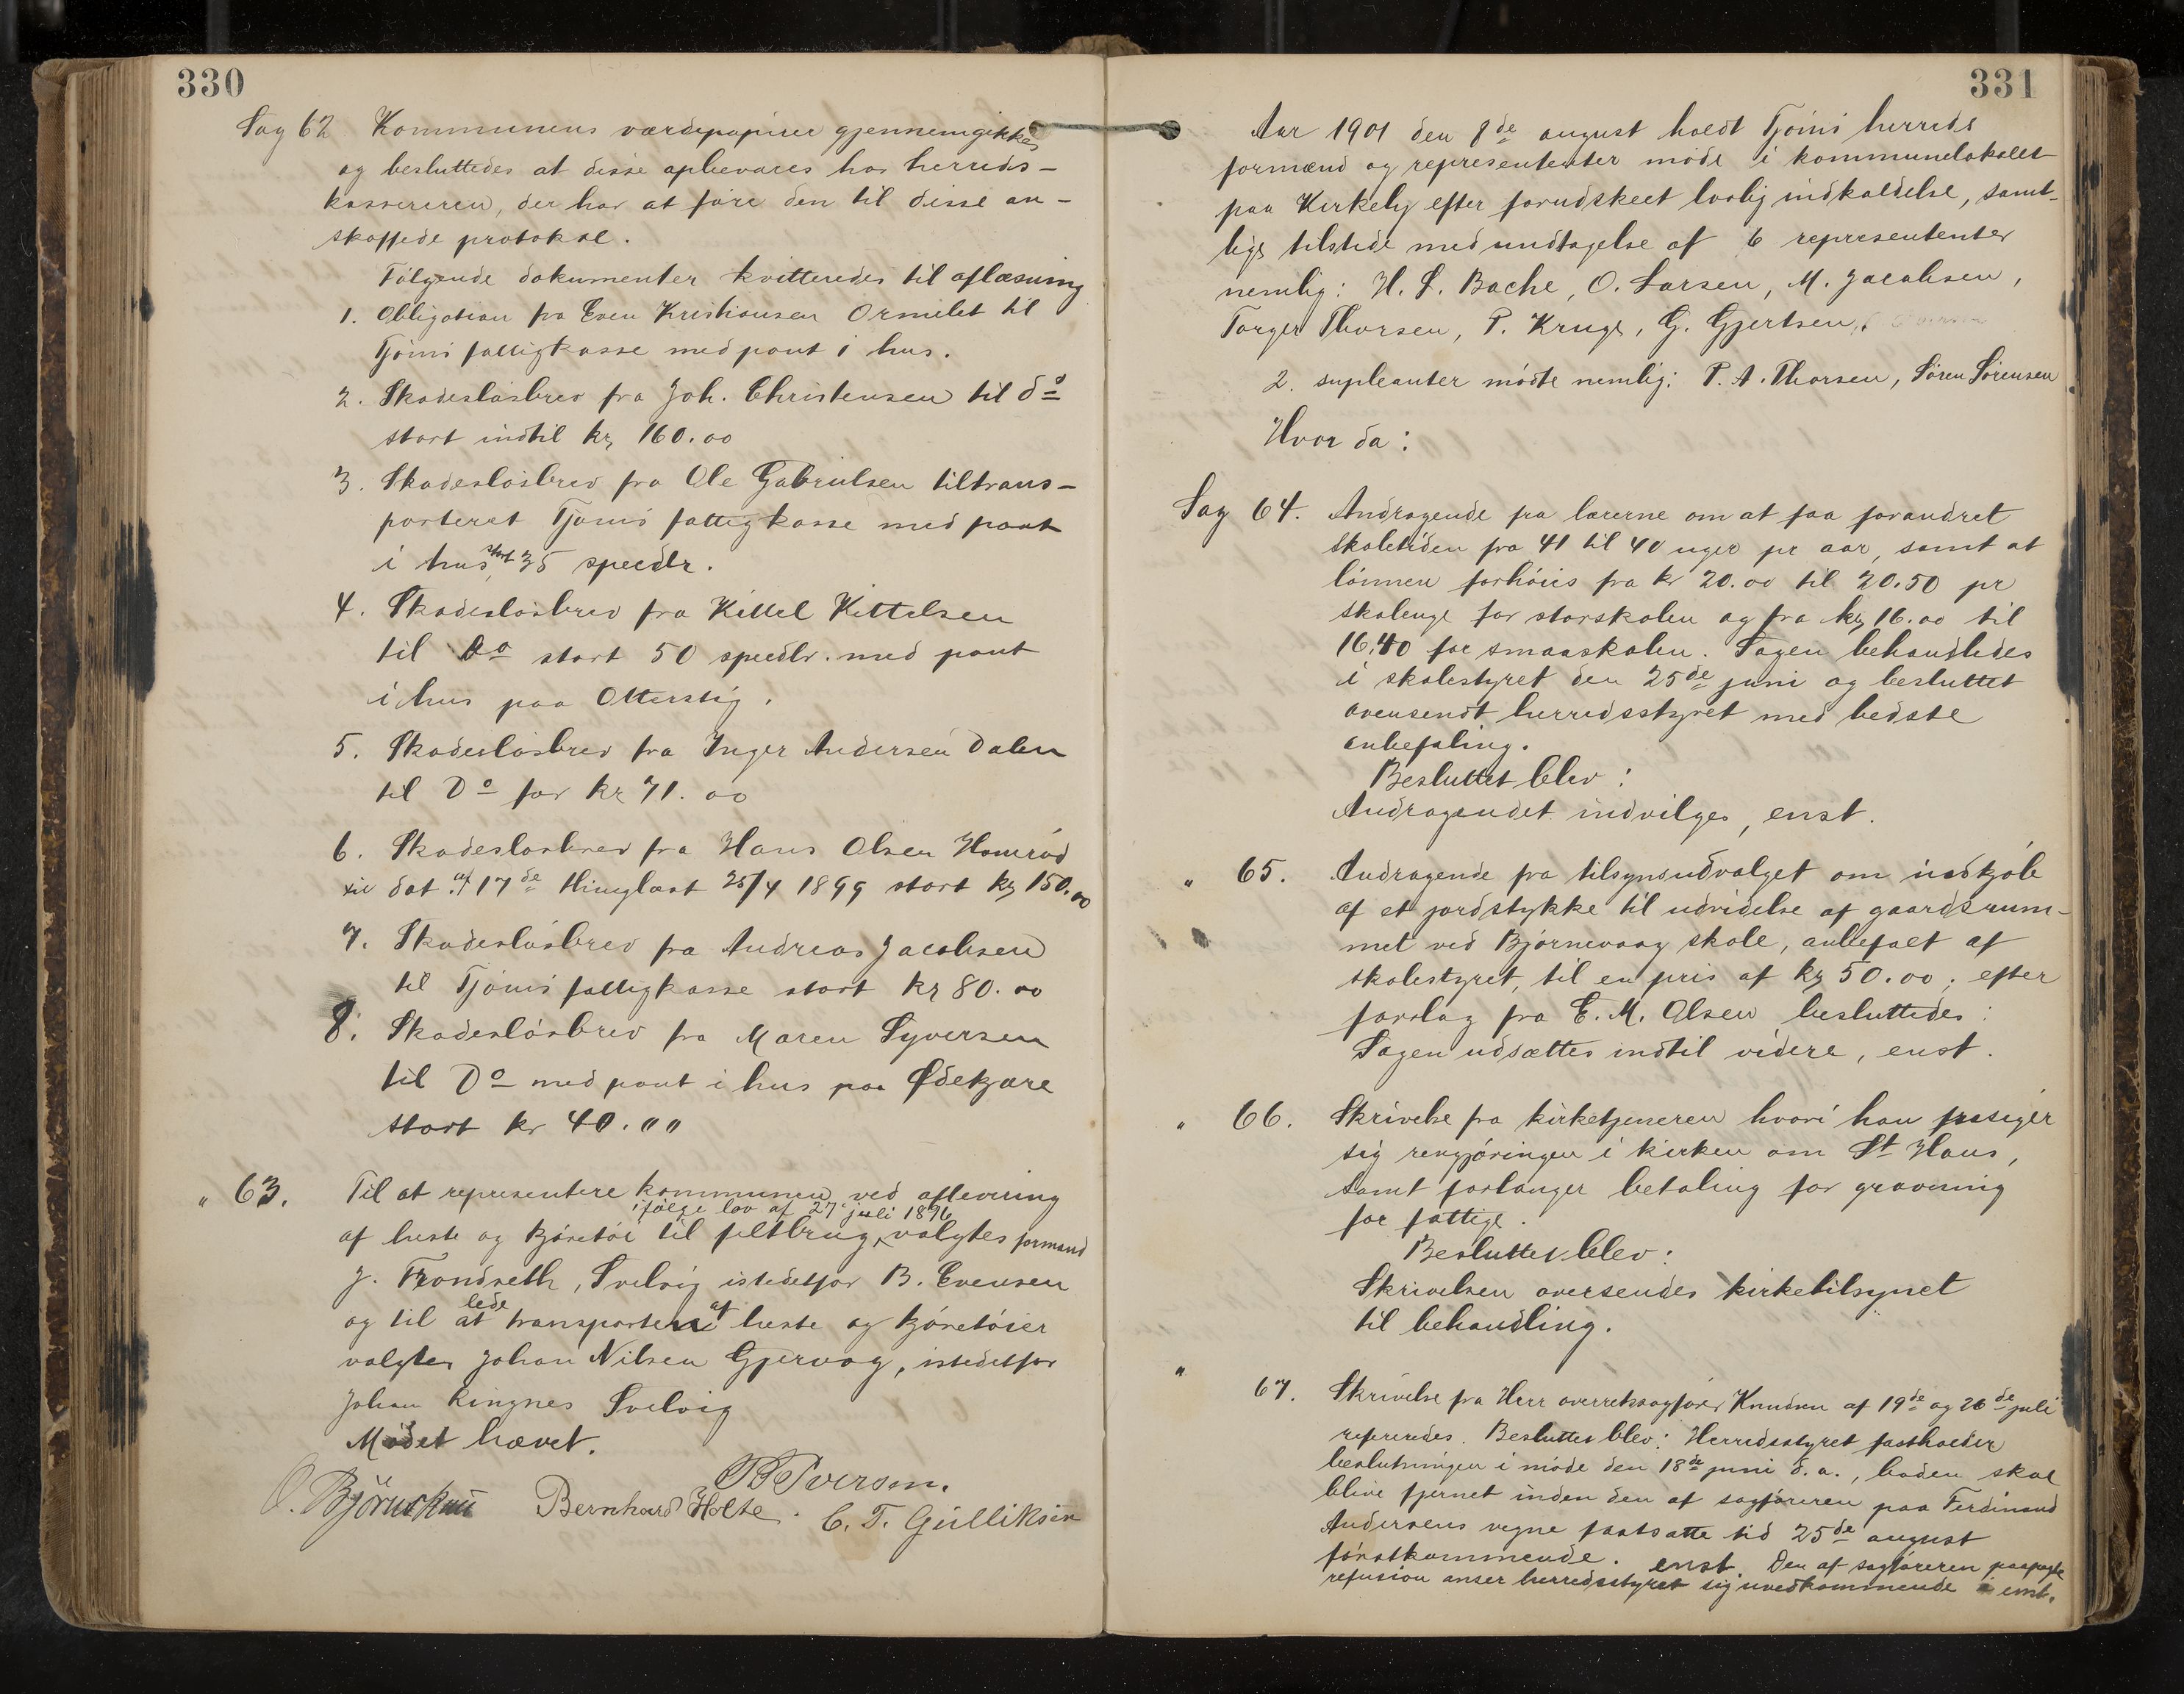 330
Sag 62 Kommunens værdipapirer gjennemgikkes
og besluttedes at disse opbevares hos herreds-
kassereren, der har at føre den til disse an-
skaffede protokol.
Følgende dokumenter kvitteredes til aflæsning
1. Obligation fra Even Kristiansen Ormelet til
Tjømø fattigkasse med pant i hus.
2. Skadesløsbrev fra Joh. Christensen til do
stort indtil kr 160.00
3. Skadesløsbrev fra Ole Gabrielsen tiltrans-
porteret Tjømø fattigkasse med pant
i hus, stort 35 speedlr.
4. Skadesløsbrev fra Kittel Kittelsen
til Do stort 50 speedlr. med pant
i hus paa Otterstig.
5. Skadesløsbrev fra Inger Andersen Dalen
til Do for kr 71.00
6. Skadesløsbrev fra Hans Olsen Homrød
til dat af 17de thinglæst 25/4 1899 stort kr 150.00
7. Skadesløsbrev fra Andreas Jacobsen
til Tjømø fattigkasse stort kr 80.00
8. Skadesløsbrev fra Maren Syversen
til Do med pant i hus paa Ødekjære
stort kr 40.00
" 63. Til at representere kommunen ved aflevering
ifølge lov af 27 juli 1896
af heste og kjøretøi til feltbrug, valgtes formand
J. Trondseth, Svelvig istedetfor B. Evensen
og til at lede transporten af heste og kjøretøier
valgtes Johan Nilsen Gjervog, istedetfor
Johan Ringnes Svelvig
Mødet hævet.
O. Bjørnskau Bernhard Holte. B Iversen.
C. T. Gulliksen
331
Aar 1901 den 8de august holdt Tjømø herreds
formænd og represententer møde i kommunelokalet
paa Kirkely efter forudskeet lovlig indkaldelse, samt-
lige tilstede med undtagelse af 6 represententer
nemlig: H. L. Bache, O. Larsen, M. Jacobsen,
Torger Thorsen, P. Kruge, G. Gjertsen,
2. supleanter mødte nemlig: P. A. Thorsen, Søren Sørensen
Hvor da:
Sag 64. Andragende fra lærerne om at faa forandret
skoletiden fra 41 til 40 uger pr aar, samt at
lønnen forhøies fra kr 20.00 til 20.50 pr
skoleuge for storskolen og fra kr 16.00 til
16.40 for smaaskolen. Sagen behandledes
i skolestyret den 25de juni og besluttet
oversendt herredsstyret med bedste
anbefaling.
Besluttet blev:
Andragendet indvilges, enst.
" 65. Andragende fra tilsynsudvalget om indkjøb
af et jordstykke til udvidelse af gaardsrum-
met ved Bjørnevaag skole, anbefalt af
skolestyret, til en pris af kr 50.00; efter
forslag fra E. M. Olsen besluttedes:
Sagen udsættes indtil videre, enst.
" 66. Skrivelse fra kirketjeneren hvori han frasiger
sig rengjøringen i kirken om St Hans,
samt forlanger betaling for gravning
for fattige.
Besluttet blev:
Skrivelsen oversendes kirketilsynet
til behandling.
" 67. Skrivelse fra Herr overretssagfører Knudsen af 19de og 26de juli
refereredes. Besluttet blev: Herredsstyret fastholder
beslutningen i møde den 18de juni d. a., boden skal
blive fjernet inden den af sagføreren paa Ferdinand
Andersens vegne fastsatte tid 25de august
førstkommende. enst. Den af sagføreren
refusion anser herredsstyret sig uvedkommende enst.